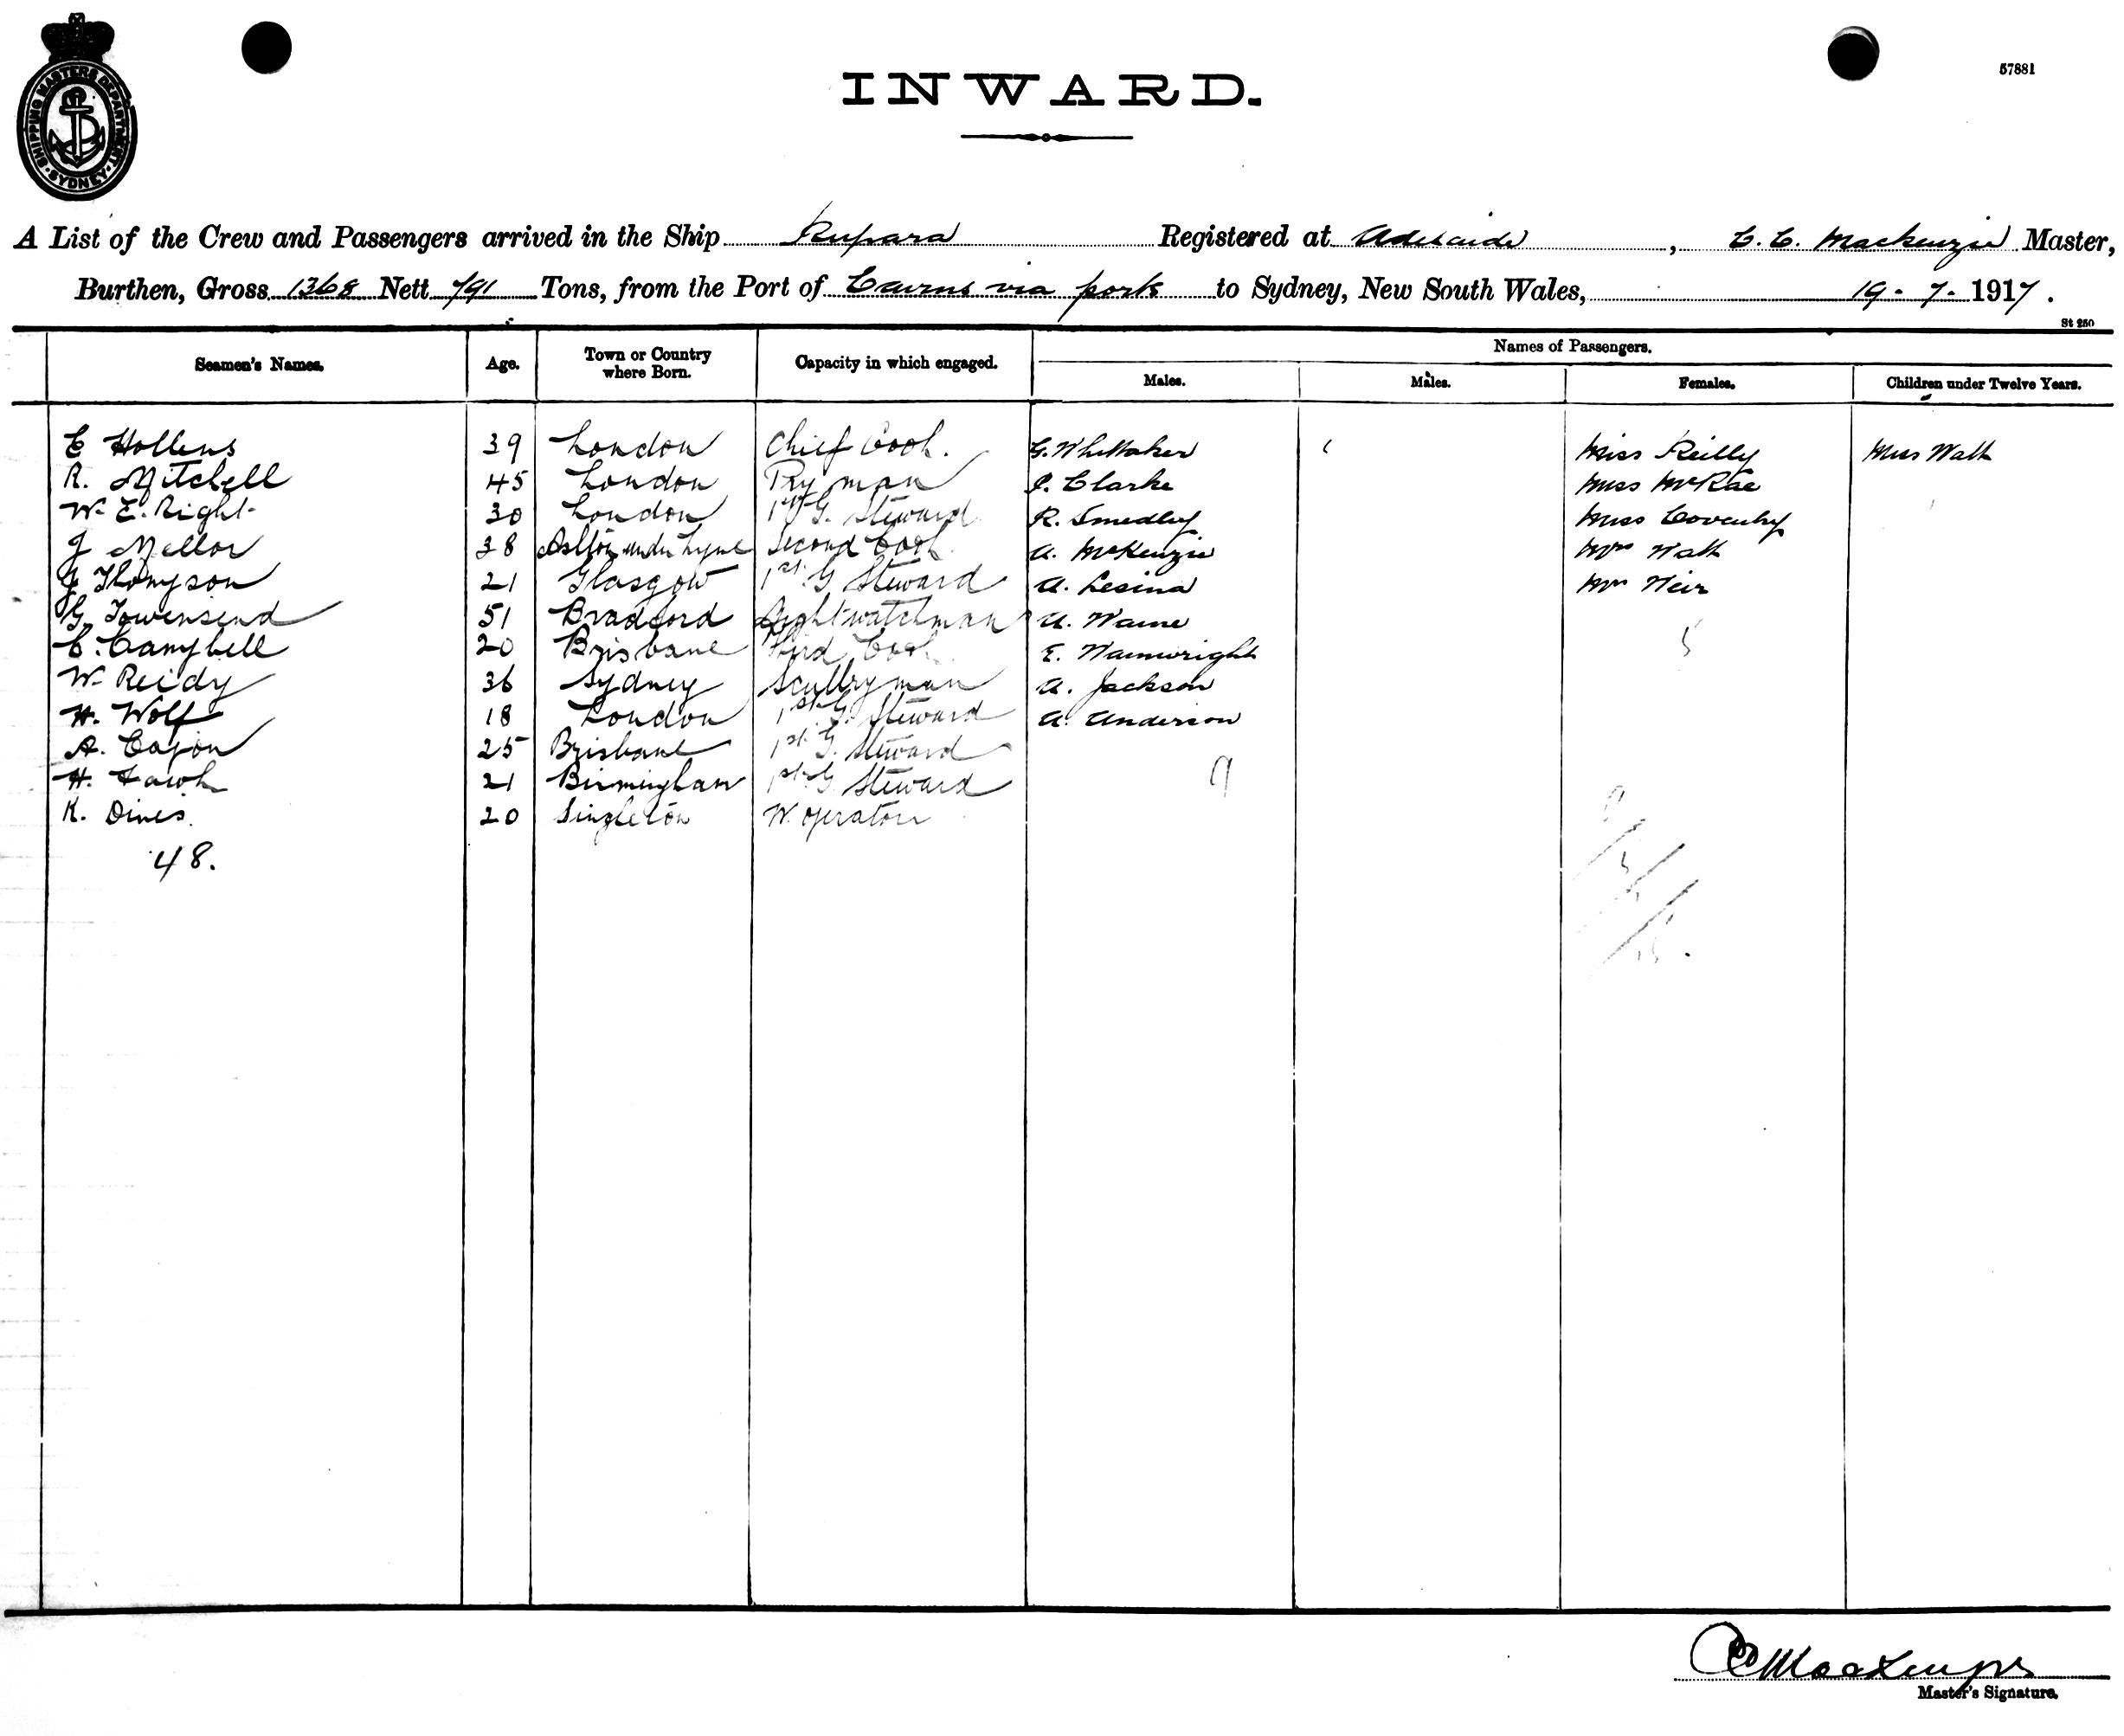 SHIPPING MASTERS DEPARTMENT
SYDNEY
57881
INWARD.
A List of the Crew and Passengers arrived in the Ship Rupara Registered at Adelaide, C. C. Mackenzie Master,
Burthen, Gross 1368 Nett 791 Tons, from the Port of Cairns via ports to Sydney, New South Wales, 19-7-1917.
St 250
Seamen's Names. Age. Town or Country where Born. Capacity in which engaged. Names of Passengers.
Males. Males. Females. Children under Twelve Years.
E Hollens 39 London Chief Cook. G. Whittaker Miss Reilly Miss Watt
R. Mitchell 45 London Pry man J. Clarke Miss McRae
W. E. Right 30 London 1st G. Steward R. Smedley Miss Coventry
J Mellor 38 Ashton under Lyne Second Cook A. McKenzie Mrs Watt
J Thompson 21 Glasgow 1st. G Steward A. Lesina Mrs Weir
G. Townsend 51 Bradford Nightwatchman A. Warne
C. Campbell 20 Brisbane Third Cook E. Wainwright 5
W. Reidy 36 Sydney Scullryman A. Jackson
H. Wolf 18 London 1st G. Steward A. Anderson
A. Cajon 25 Brisbane 1st. G. Steward
H. 21 Birmingham 1st G Steward 9
K. Dines. 20 Singleton W. operator
48.
C C Mackenzie
Master's Signature.